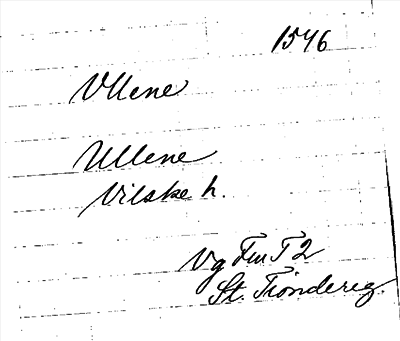 1546
Vllene
Ullene
Vilske h.
Vg Fm T 2
St. Tiondereg.